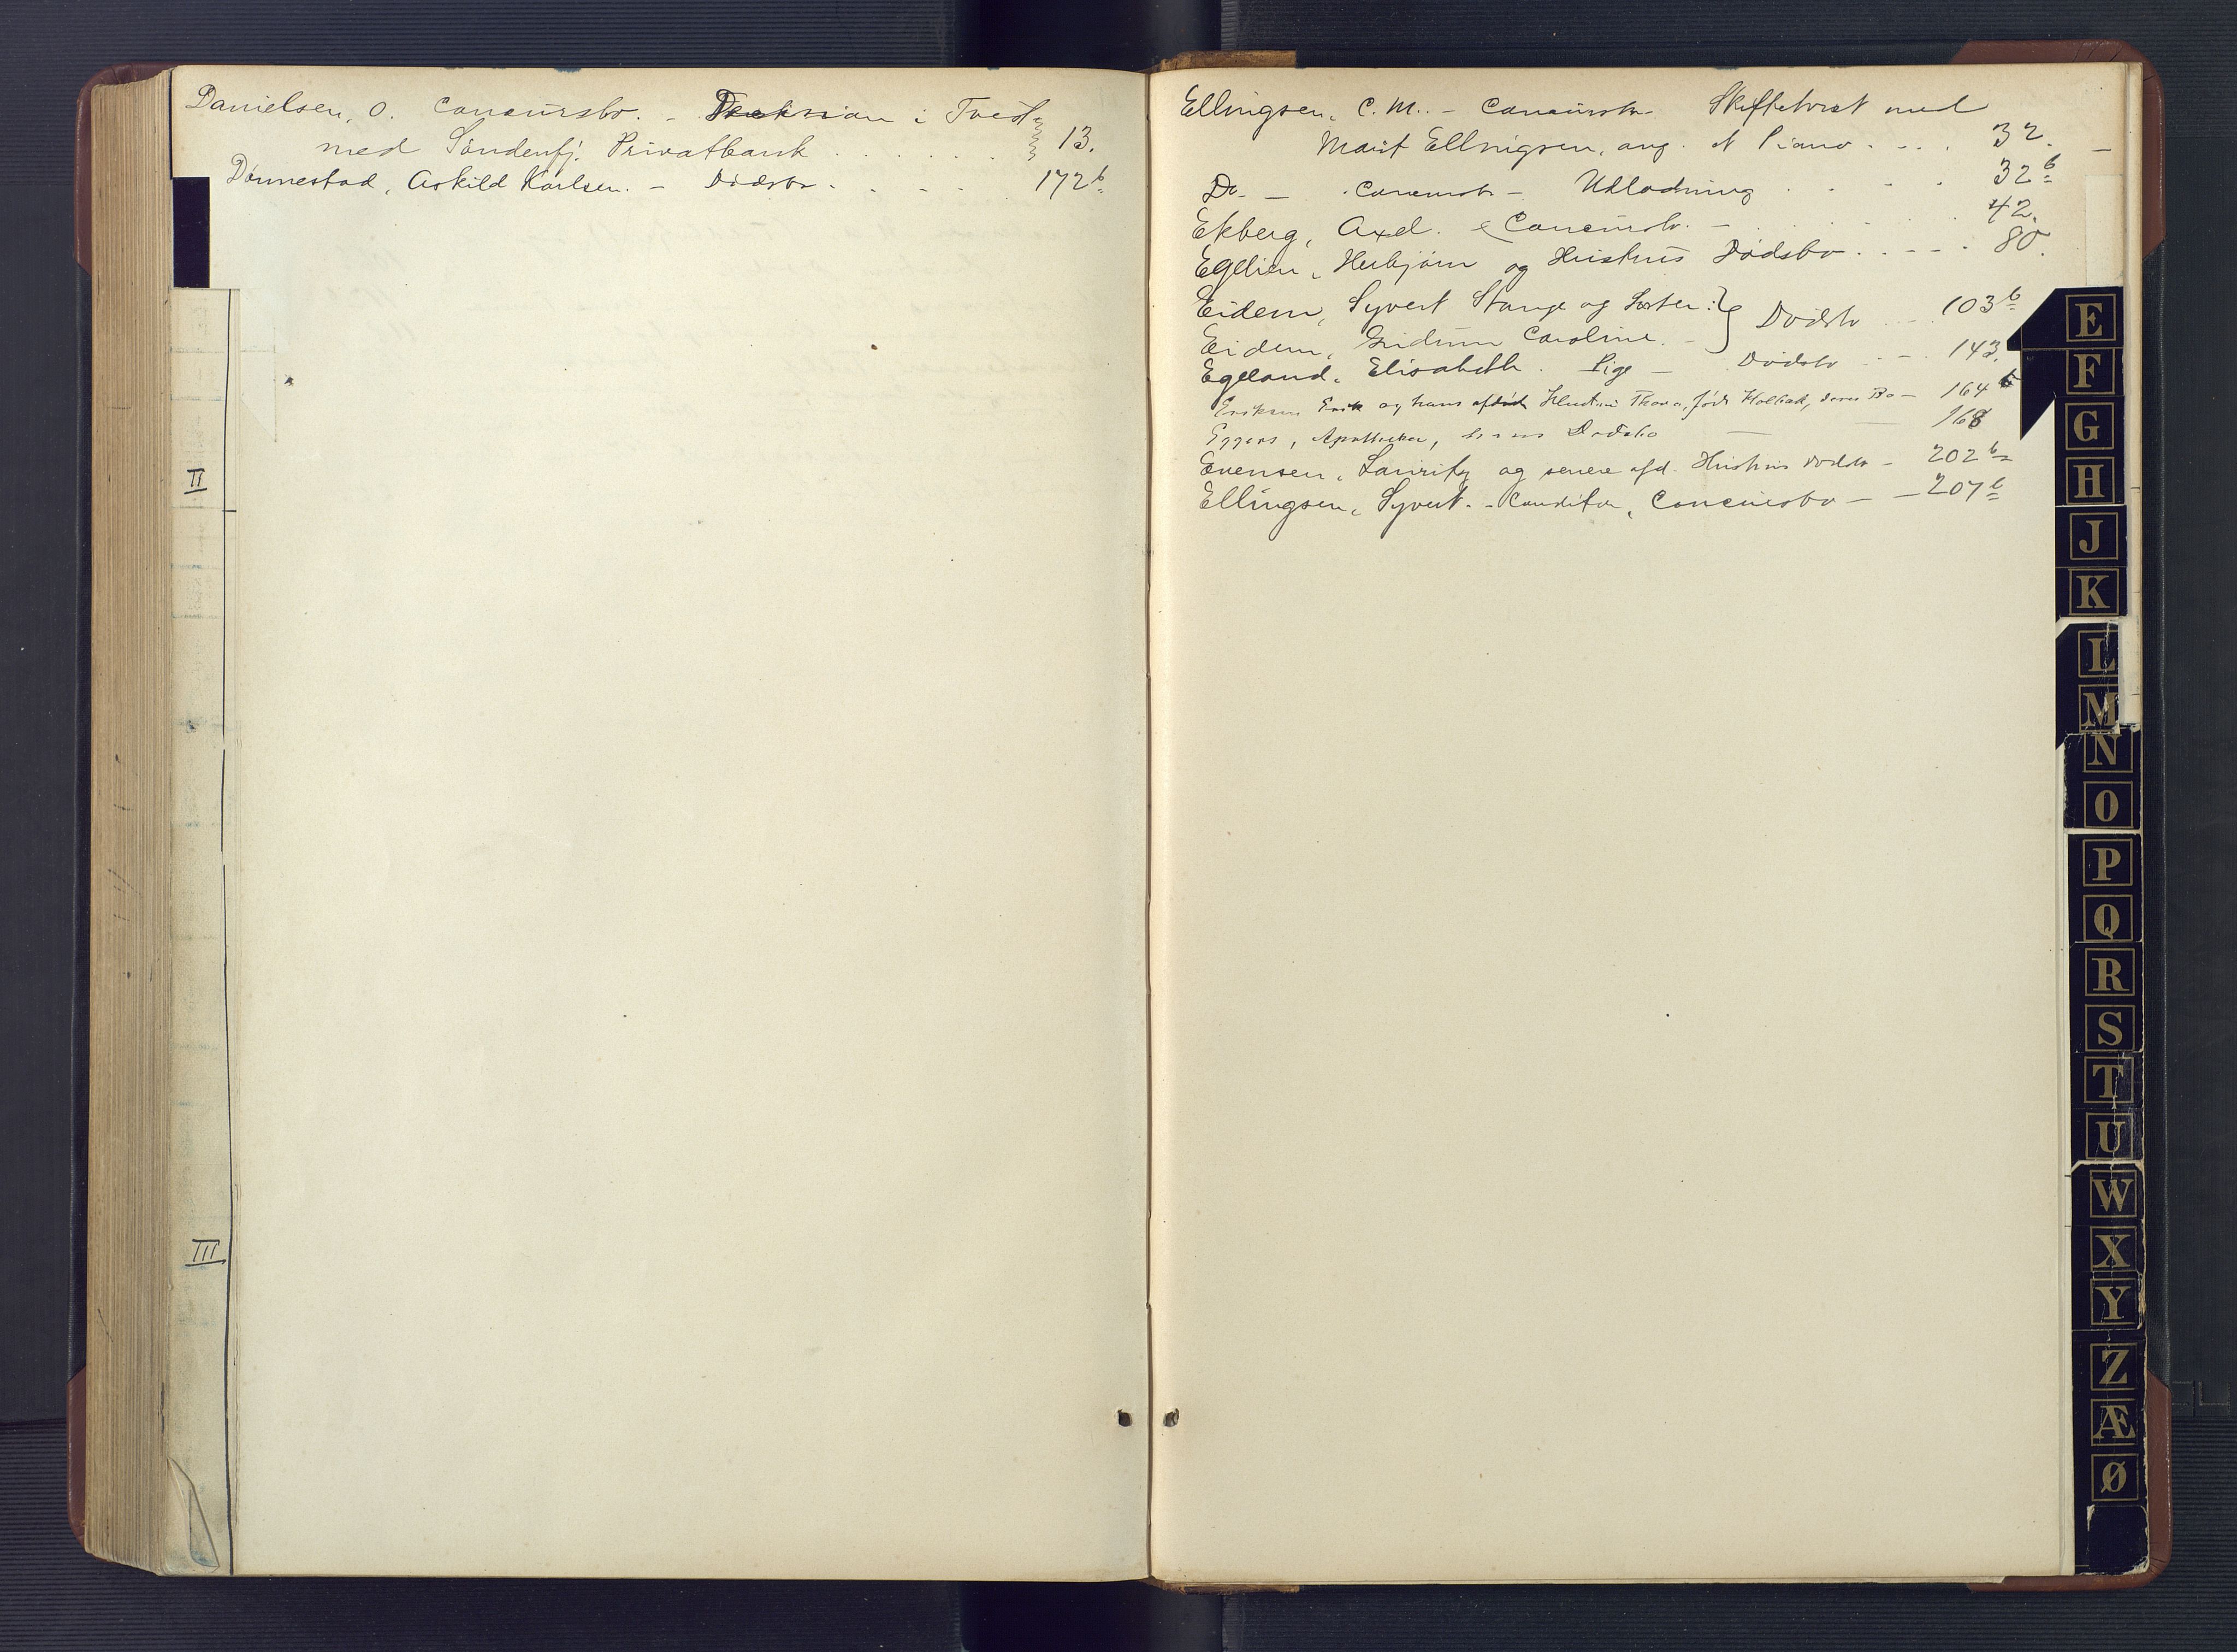 Danielsen, O. Concursbo. - i Tvist
med Søndenfj. Privatbank . . . . . . . 13.
Dønnestad, Askild Karlsen. - Dødsbo. . . . . 172b
II
III
Ellingsen, C. M. - Concursbo - Skiftetvist med
Marit Ellingsen, ang. et Piano . - . . 32.
Do - Concursbo - Udlodning . . - . 32b
Ekberg, Axel. Concursbo. - . . . . 42.
Egelien, Herbjørn og Hustrus Dødsbo . . - - . 80.
Eidem, Syvert Stange og Søster :
Eidem, Caroline. - } Dødsbo . . - . 103b
Egeland, Elisabeth. Pige - Dødsbo - . - . 143.
Eriksen Erik og hans afdøde Hustru Thora, født Holbæk, deres Bo - 164b
Eggers, Apotheker, hans Dødsbo — — 168
Evensen, Lauritz og senere afd. Hustrus Dødsbo - 202b
Ellingsen, Syvert. - Conditor, Concursbo - - 207b
E
F
G
H
J
K
L
M
N
O
P
Q
R
S
T
U
W
X
Y
Z
Æ
Ø